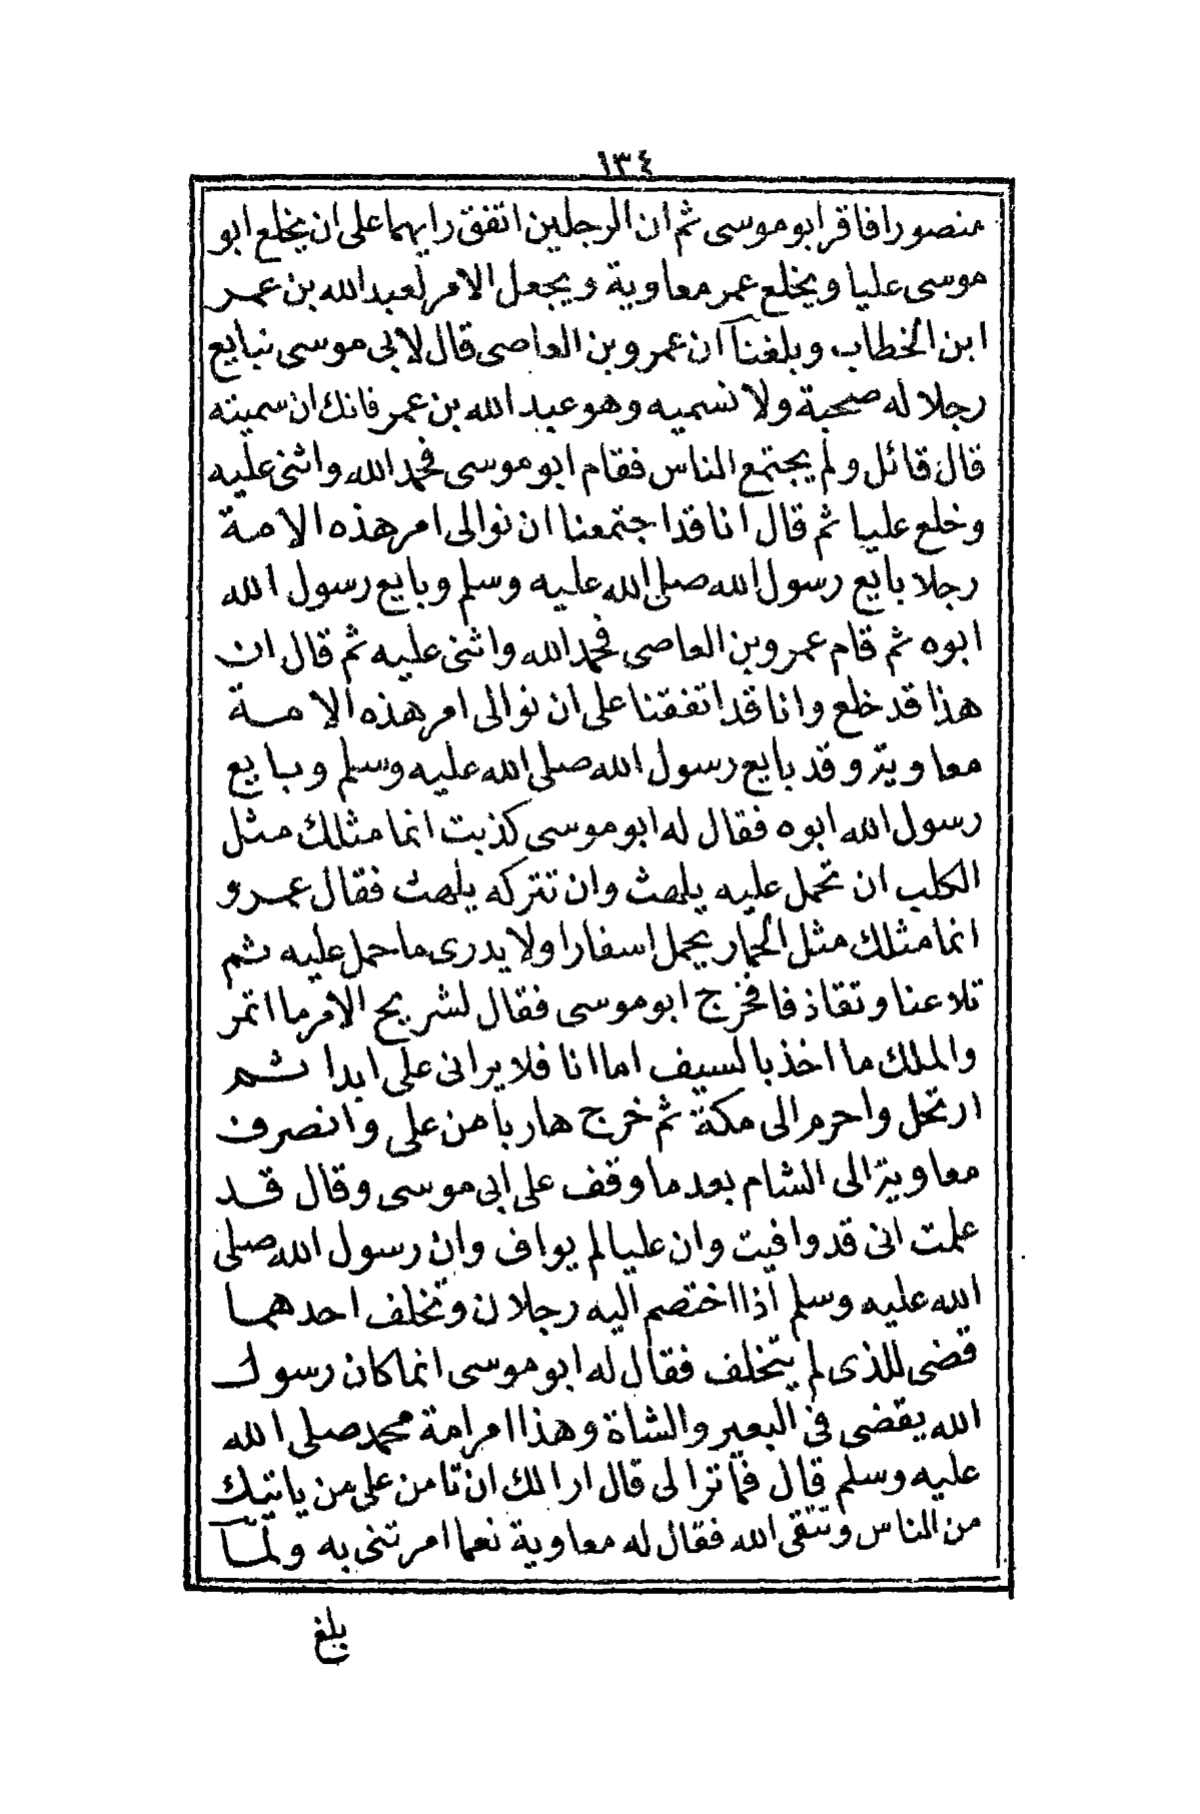 ١٣٤
منصورا فاقر ابو موسى ثم ان الرجلين اتفق رايهما على ان يخلع ابو
موسى عليا ويخلع عمر معاوية ويجعل الامر لعبد الله بن عمر
ابن الخطاب وبلغنا ان عمرو بن العاصى قال لابى موسى نبايع
رجلا له صحبة ولا نسميه وهو عبد الله بن عمر فانك ان سميته
قال قائل ولم يجتمع الناس فقام ابو موسى فحمد الله واثنى عليه
وخلع عليا ثم قال انا قد اجتمعنا ان نوالى امر هذه الامة
رجلا بايع رسول الله صلى الله عليه وسلم وبايع رسول الله
ابوه ثم قام عمرو بن العاصى فحمد الله واثنى عليه ثم قال ان
هذا قد خلع وانا قد اتفقنا على ان نوالى امر هذه الامة
معاوية وقد بايع رسول الله صلى الله عليه وسلم وبايع
رسول الله ابوه فقال له ابو موسى كذبت انما مثلك مثل
الكلب ان تحمل عليه يلهث وان تتركه يلهث فقال عمرو
انما مثلك مثل الحمار يحمل اسفارا ولا يدرى ما حمل عليه ثم
تلاعنا وتقاذفا فخرج ابو موسى فقال لشريح الامر ما اتمر
والملك ما اخذ بالسيف اما انا فلا يرانى على ابدا ثم
ارتحل واحرم الى مكة ثم خرج هاربا من على وانصرف
معاوية الى الشام بعد ما وقف على ابى موسى وقال قد
علمت انى قد وافيت وان عليا لم يواف وان رسول الله صلى
الله عليه وسلم اذا اختصم اليه رجلان وتخلف احدهما
قضى للذى لم يتخلف فقال له ابو موسى انما كان رسول
الله يقضى فى البعير والشاة وهذا امر امة محمد صلى الله
عليه وسلم قال فما ترا لى قال ارا لك ان تامن على من ياتيك
من الناس وتتقى الله فقال له معاوية نعما امرتنى به ولما
بلغ